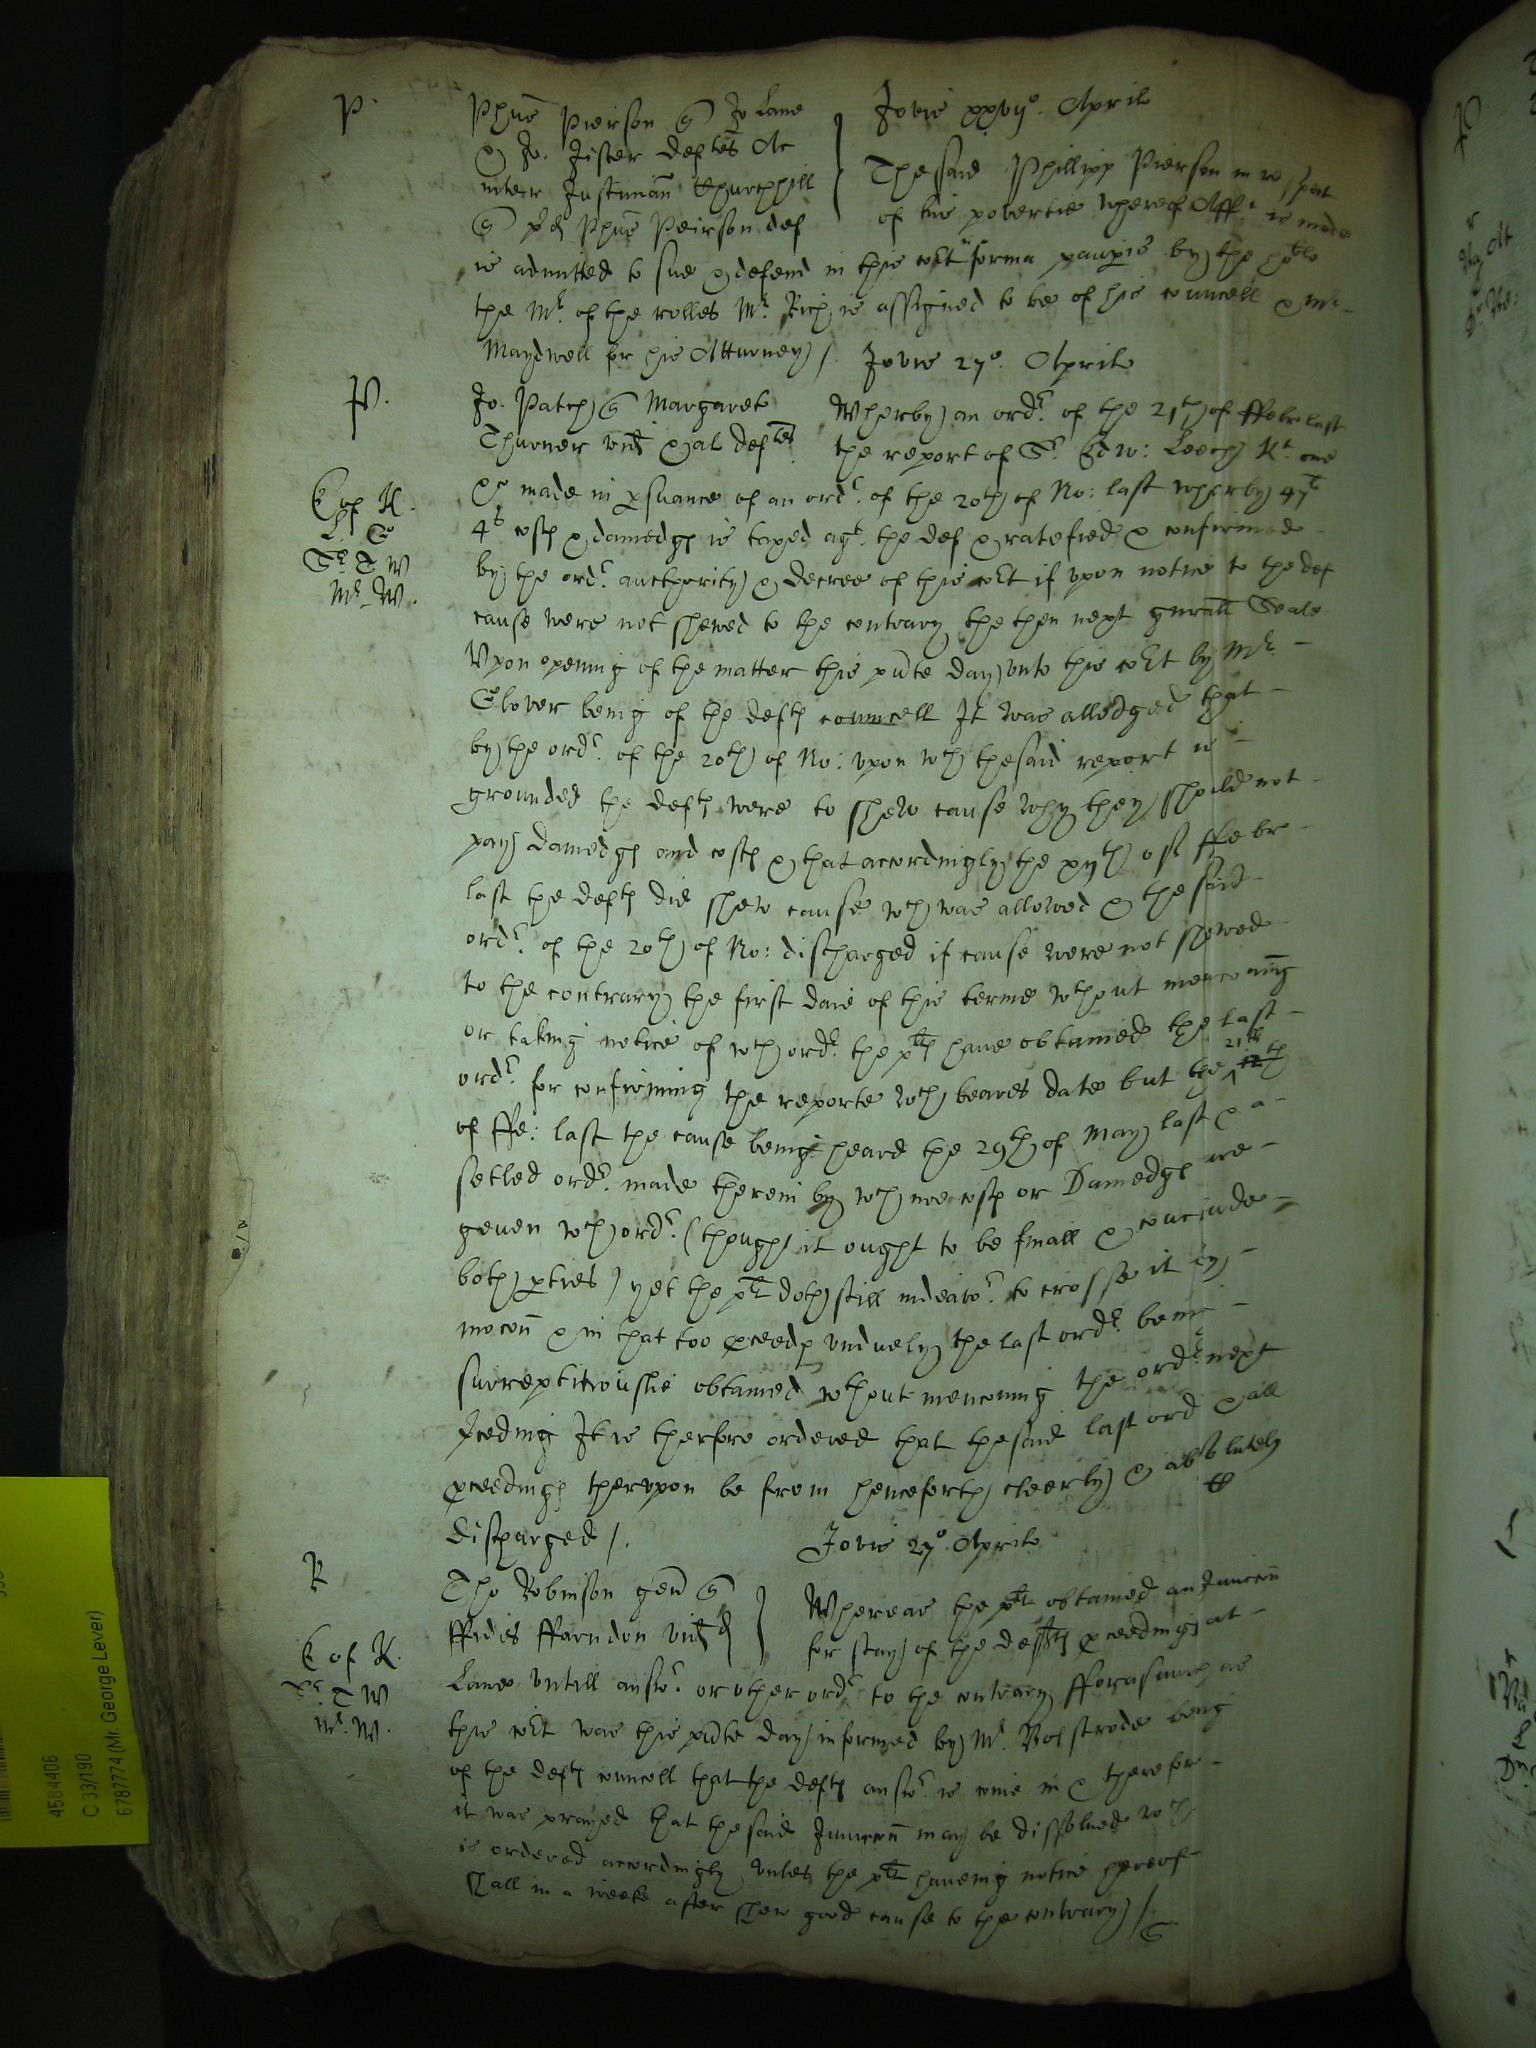 P.
Phus Pierson Jo Lane
Jovis xxvijo. Aprilis
& Jo. Jister deftes Ac
inter Justinian Churchhill
The said Phillipp Pierson in respect
p'd Phus Peirson def
of his povertie whereof Aff. is made
is admitted to sue & defend in this cort in forma paupis by the
the Mr. of the rolles Mr. Rich is assigned to be of his councell & Mr.
Maydwell for his Atturney /.
Jovis 27o. Aprilis
P.
Jo. Patch Margaret
Wherby an ordr. of the 21th of ffebr last
Thurner vid & al deftes
the report of Sr. Edw: Leech Kt. one
C of K.
&c made in psuance of an ordr. of the 20th of No: last wherby 47l
4s costs & damedgs is taxed agt. the def & ratefied & confirmed
Sr T W
by the ordr. aucthority & decree of this cort if vpon notice to the def
Mr. W.
cause were not shewed to the contrary the then next gnrall Seale
Vpon opening of the matter this pnte day vnto this cort by Mr.
Glover being of the defts councell It was alledged that
by the ordr. of the 20th of No: vpon wch the said report is
grounded the defts were to shew cause why they should not
pay damedgs and costs & that accordingly the xijth of ffebr
last the defts did shew cause wch was allowed & the said
ordr. of the 20th of No: discharged if cause were not shewed
to the contrary the first daie of this terme wthout menconing
or taking notice of wch ordr. the plts have obtained the last
ordr. for confirming the reporte wch beares date but the 21th 12th
of ffe: last the cause being heard the 29th of May last & a
setled ordr. made therein by wch noe costs or Damedgs are
geven wch ordr. (though it ought to be finall & conclude
both pties) yet the plt doth still indeavor. to crosse it by
mocon & in that too pceeds vnduely the last ordr. being
surreptitiouslie obtained wthout menconing the ordr. next
pceding It is therfore ordered that the said last ord & all
pceedings thervpon be from henceforth cleerly & absolutely
discharged /.
Jovis 27o. Aprilis
R
Tho Robinson gen
Whereas the plt obtained an Junccon
ffrdes ffarndon vid
for stay of the defts pceedings at
C of K.
Lawe vntill answr. or other ordr to the contrary fforasmuch as
Sr. T W
this cort was this pnte day informed by Mr. Bolstrode being
Mr. W.
of the defts councell that the defts answr. is come in & therefore
it was prayed that the said Junccon may be dissolued wch
is ordered accordingly vnles the plt haueing notice hereof
shall in a weeke after shew good cause to the contrary /.
4584406
C 33/190
6787774 (Mr. George Lever)